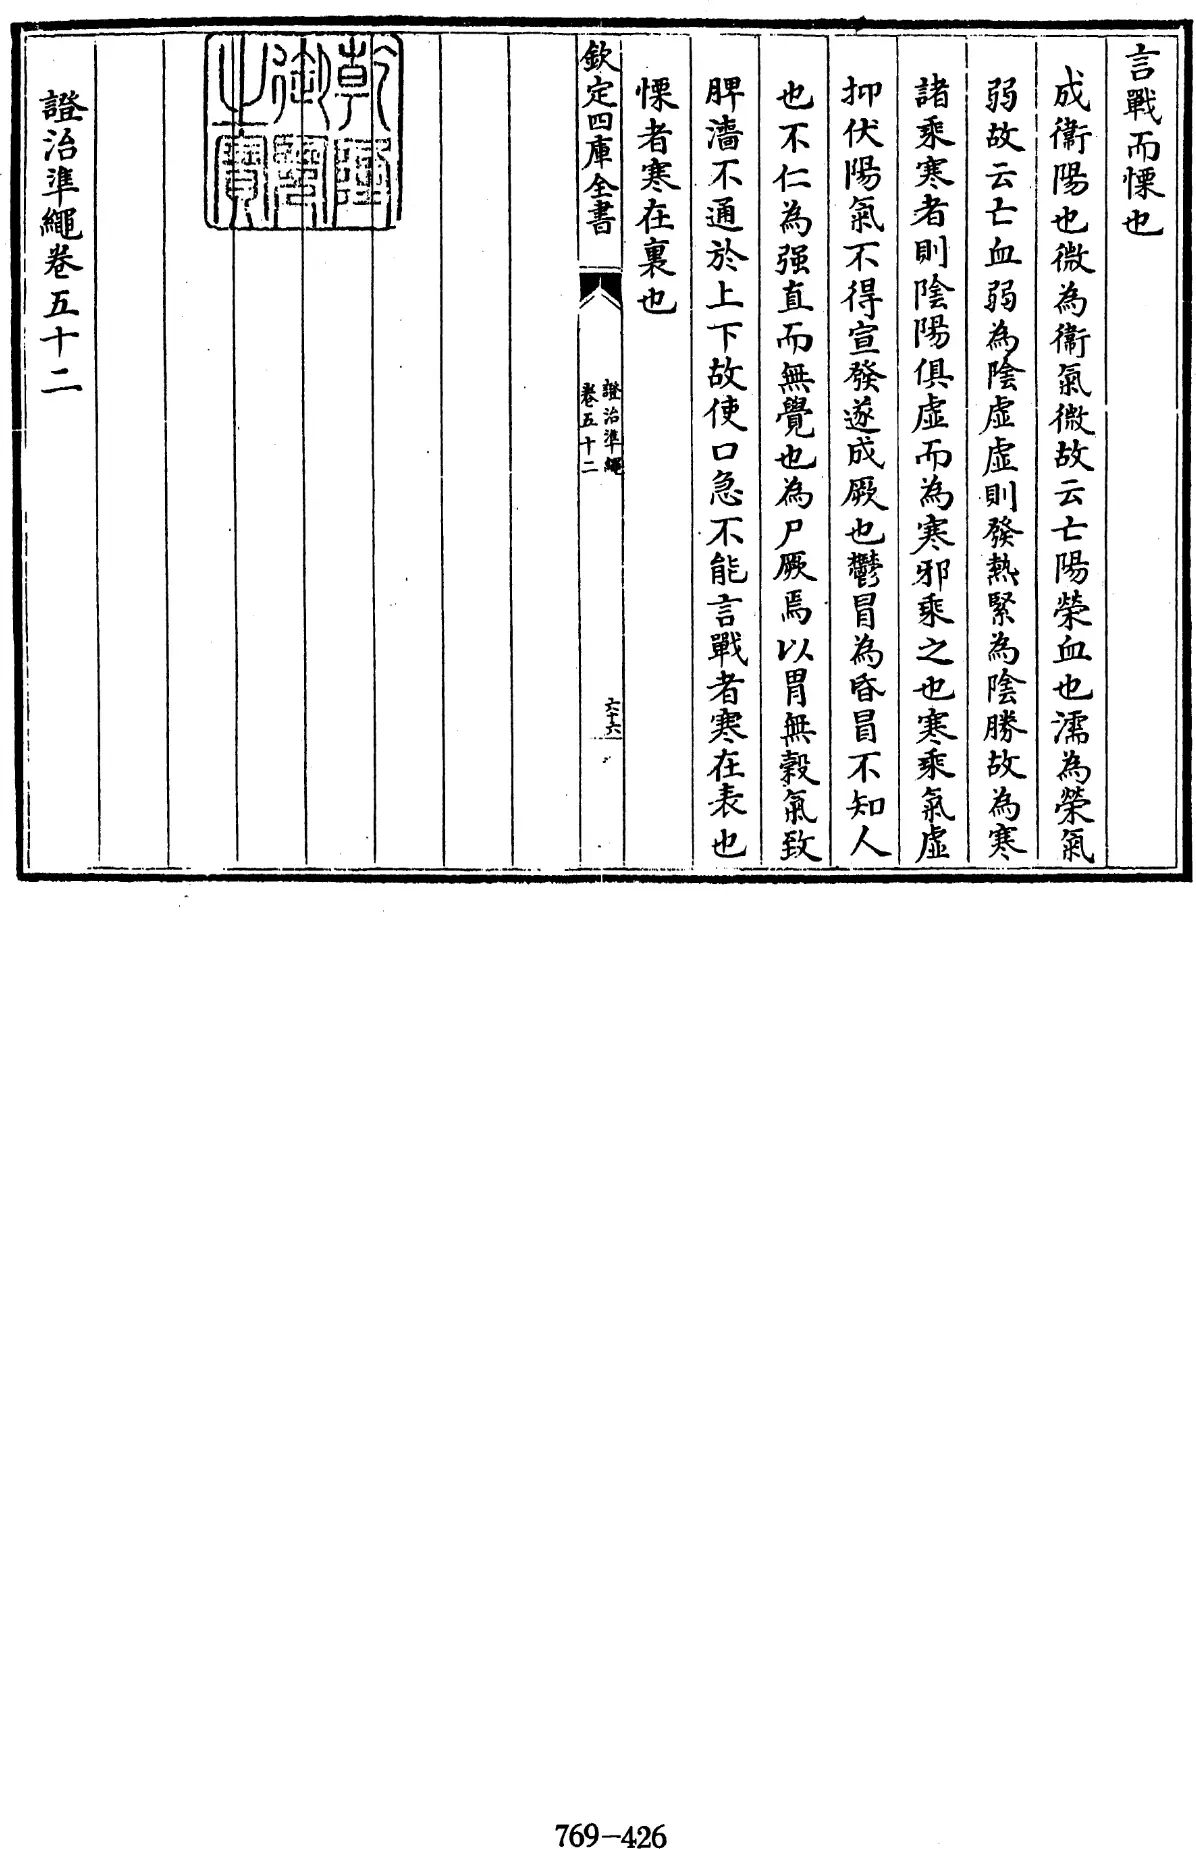 言戰而慄也
成衞陽也微為衞氣微故云亡陽榮血也濡為榮氣
弱故云亡血弱為陰虛虛則發熱緊為陰勝故為寒
諸乘寒者則陰陽俱虛而為寒邪乘之也寒乘氣虛
抑伏陽氣不得宣發遂成厥也鬱冒為昏冒不知人
也不仁為强直而無覺也為尸厥焉以胃無穀氣致
脾濇不通於上下故使口急不能言戰者寒在表也
慄者寒在裏也
欽定四庫全書
證治準繩
卷五十二
六十六
乾隆御覽之寶
證治準繩卷五十二
769-426